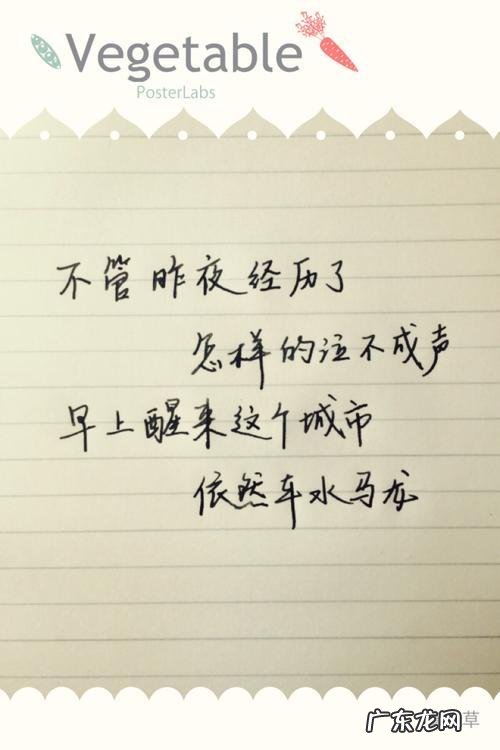 Vegetable
PosterLabs
不管昨夜经历了
怎样的泣不成声
早上醒来这个城市
依然车水马龙
草
广东龙网